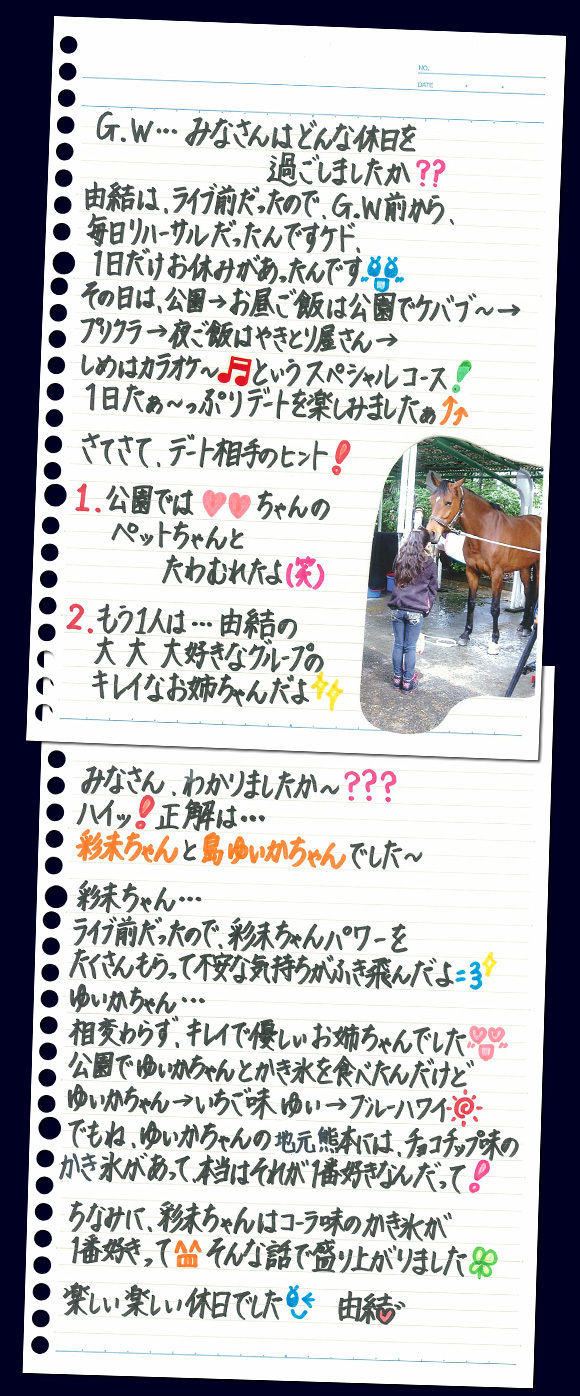 NO.
DATE
G.W… みなさんはどんな休日を
過ごしましたか??
由結は、ライブ前だったので、G.W前から、
毎日リハーサルだったんですケド、
1日だけお休みがあったんです
その日は、公園→お昼ご飯は公園でケバブ〜→
プリクラ→夜ご飯はやきとり屋さん→
しめはカラオケ〜♬というスペシャルコース!
1日たぁ〜っぷりデートを楽しみましたぁ↑↑
さてさて、デート相手のヒント!
1.公園では♥♥ちゃんの
ペットちゃんと
たわむれたよ(笑)
2.もう1人は…由結の
大大大好きなグループの
キレイなお姉ちゃんだよ
みなさん、わかりましたか〜???
ハイッ!正解は…
彩未ちゃんと島ゆいかちゃんでした〜
彩未ちゃん…
ライブ前だったので、彩未ちゃんパワーを
たくさんもらって不安な気持ちがふき飛んだよ=3
ゆいかちゃん…
相変わらず、キレイで優しいお姉ちゃんでした
公園でゆいかちゃんとかき氷を食べたんだけど
ゆいかちゃん→いちご味 ゆい→ブルーハワイ
でもね、ゆいかちゃんの地元熊本には、チョコチップ味の
かき氷があって、本当はそれが1番好きなんだって!
ちなみに、彩未ちゃんはコーラ味のかき氷が
1番好きって^^そんな話で盛り上がりました
楽しい楽しい休日でした 由結